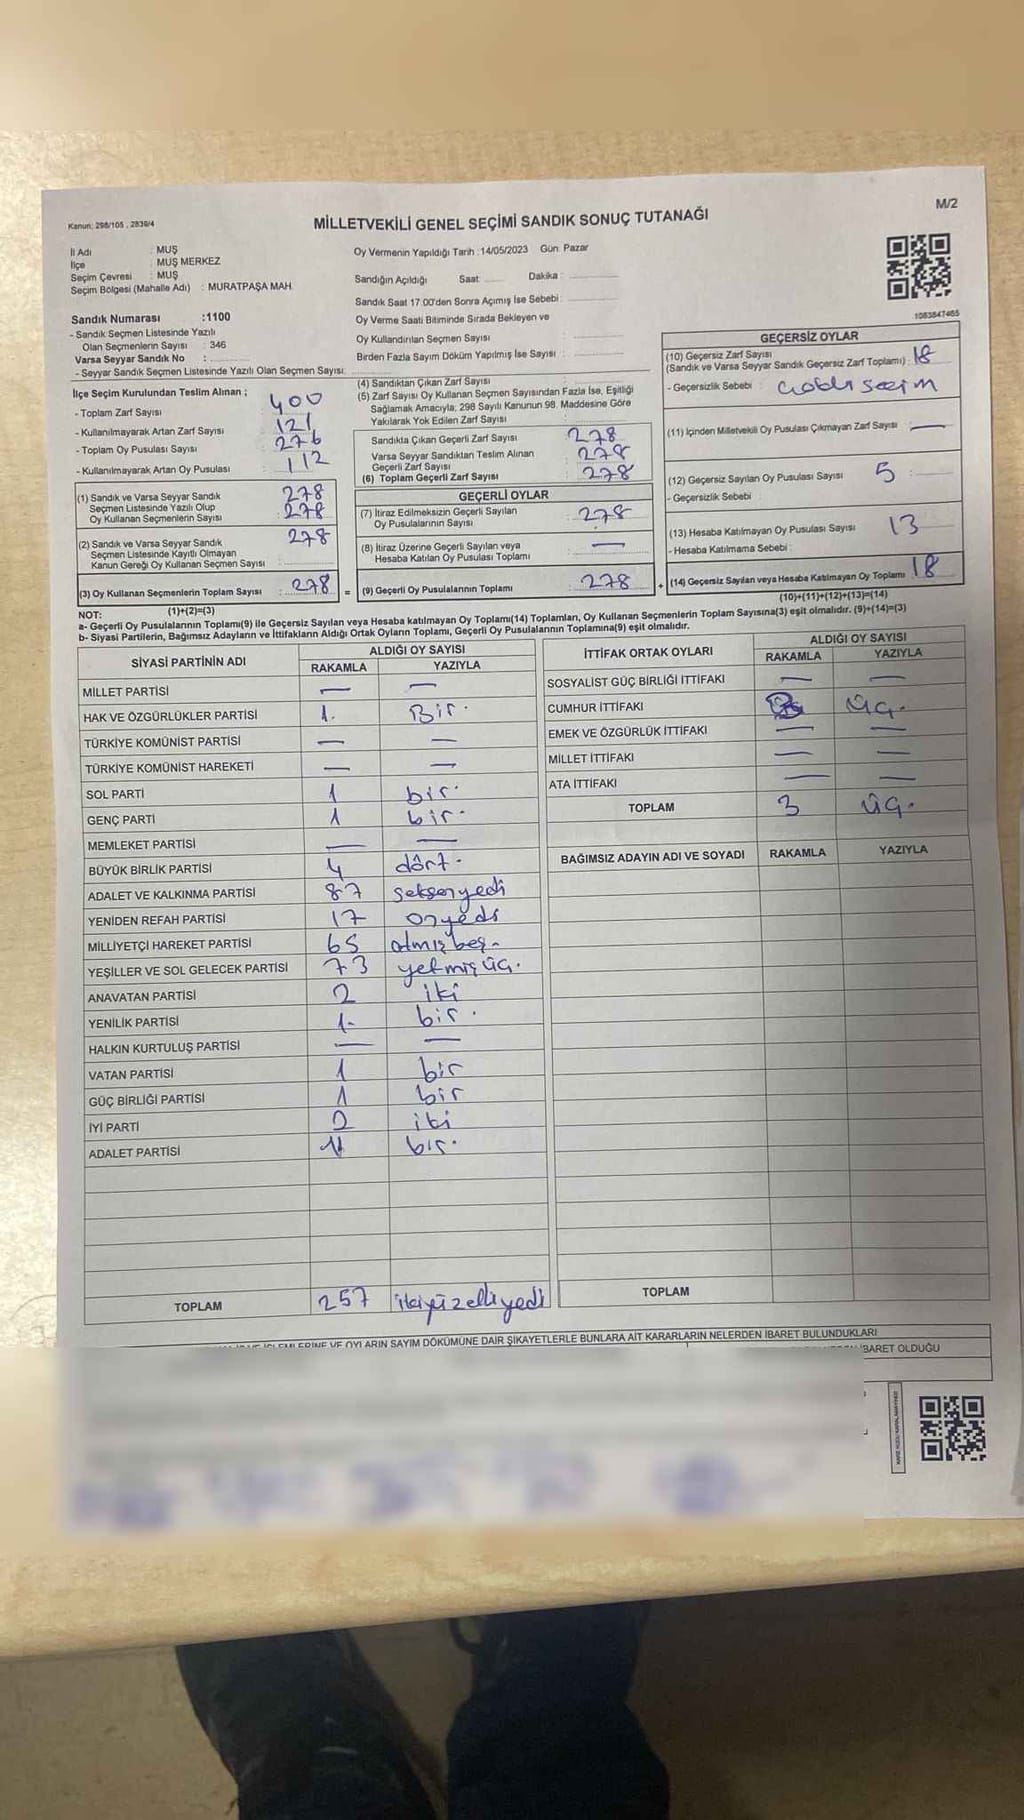 M/2
Kanun: 298/105 , 2839/4
MİLLETVEKİLİ GENEL SEÇİMİ SANDIK SONUÇ TUTANAĞI
İl Adı : MUŞ
İlçe : MUŞ MERKEZ
Seçim Çevresi : MUŞ
Seçim Bölgesi (Mahalle Adı) : MURATPAŞA MAH.
Oy Vermenin Yapıldığı Tarih :14/05/2023 Gün: Pazar
Sandığın Açıldığı Saat: Dakika :
Sandık Saat 17.00'den Sonra Açımış İse Sebebi:
Oy Verme Saati Bitiminde Sırada Bekleyen ve
Oy Kullandırılan Seçmen Sayısı :
Birden Fazla Sayım Döküm Yapılmış İse Sayısı :
1083847465
Sandık Numarası :1100
- Sandık Seçmen Listesinde Yazılı
Olan Seçmenlerin Sayısı : 346
Varsa Seyyar Sandık No :
- Seyyar Sandık Seçmen Listesinde Yazılı Olan Seçmen Sayısı:
İlçe Seçim Kurulundan Teslim Alınan ;
- Toplam Zarf Sayısı : 400
- Kullanılmayarak Artan Zarf Sayısı : 121
- Toplam Oy Pusulası Sayısı : 276
- Kullanılmayarak Artan Oy Pusulası : 112
(1) Sandık ve Varsa Seyyar Sandık 278
Seçmen Listesinde Yazılı Olup 278
Oy Kullanan Seçmenlerin Sayısı
(2) Sandık ve Varsa Seyyar Sandık 278
Seçmen Listesinde Kayıtlı Olmayan
Kanun Gereği Oy Kullanan Seçmen Sayısı
(3) Oy Kullanan Seçmenlerin Toplam Sayısı : 278 =
(4) Sandıktan Çıkan Zarf Sayısı :
(5) Zarf Sayısı Oy Kullanan Seçmen Sayısından Fazla İse, Eşitliği
Sağlamak Amacıyla; 298 Sayılı Kanunun 98. Maddesine Göre
Yakılarak Yok Edilen Zarf Sayısı :
Sandıkta Çıkan Geçerli Zarf Sayısı : 278
Varsa Seyyar Sandıktan Teslim Alınan 278
Geçerli Zarf Sayısı
(6) Toplam Geçerli Zarf Sayısı : 278
GEÇERLİ OYLAR
(7) İtiraz Edilmeksizin Geçerli Sayılan : 278
Oy Pusulalarının Sayısı
(8) İtiraz Üzerine Geçerli Sayılan veya : —
Hesaba Katılan Oy Pusulası Toplamı
(9) Geçerli Oy Pusulalarının Toplamı : 278 +
GEÇERSİZ OYLAR
(10) Geçersiz Zarf Sayısı
(Sandık ve Varsa Seyyar Sandık Geçersiz Zarf Toplamı) : 18
- Geçersizlik Sebebi :
(11) İçinden Milletvekili Oy Pusulası Çıkmayan Zarf Sayısı : —
(12) Geçersiz Sayılan Oy Pusulası Sayısı : 5
- Geçersizlik Sebebi :
(13) Hesaba Katılmayan Oy Pusulası Sayısı : 13
- Hesaba Katılmama Sebebi :
(14) Geçersiz Sayılan veya Hesaba Katılmayan Oy Toplamı : 18
NOT: (1)+(2)=(3) (10)+(11)+(12)+(13)=(14)
a- Geçerli Oy Pusulalarının Toplamı(9) ile Geçersiz Sayılan veya Hesaba katılmayan Oy Toplamı(14) Toplamları, Oy Kullanan Seçmenlerin Toplam Sayısına(3) eşit olmalıdır. (9)+(14)=(3)
b- Siyasi Partilerin, Bağımsız Adayların ve İttifakların Aldığı Ortak Oyların Toplamı, Geçerli Oy Pusulalarının Toplamına(9) eşit olmalıdır.
SİYASİ PARTİNİN ADI ALDIĞI OY SAYISI
RAKAMLA YAZIYLA
MİLLET PARTİSİ — —
HAK VE ÖZGÜRLÜKLER PARTİSİ 1. Bir.
TÜRKİYE KOMÜNİST PARTİSİ — —
TÜRKİYE KOMÜNİST HAREKETİ — —
SOL PARTİ 1 bir.
GENÇ PARTİ 1 bir.
MEMLEKET PARTİSİ — —
BÜYÜK BİRLİK PARTİSİ 4 dört.
ADALET VE KALKINMA PARTİSİ 87 seksenyedi
YENİDEN REFAH PARTİSİ 17 onyedi
MİLLİYETÇİ HAREKET PARTİSİ 65 atmış beş.
YEŞİLLER VE SOL GELECEK PARTİSİ 73 yetmiş üç.
ANAVATAN PARTİSİ 2 iki
YENİLİK PARTİSİ 1. bir.
HALKIN KURTULUŞ PARTİSİ — —
VATAN PARTİSİ 1 bir
GÜÇ BİRLİĞİ PARTİSİ 1 bir
İYİ PARTİ 2 iki
ADALET PARTİSİ 1 bir.
TOPLAM 257 ikiyüzelliyedi
İTTİFAK ORTAK OYLARI ALDIĞI OY SAYISI
RAKAMLA YAZIYLA
SOSYALİST GÜÇ BİRLİĞİ İTTİFAKI — —
CUMHUR İTTİFAKI üç.
EMEK VE ÖZGÜRLÜK İTTİFAKI — —
MİLLET İTTİFAKI — —
ATA İTTİFAKI — —
TOPLAM 3 üç.
BAĞIMSIZ ADAYIN ADI VE SOYADI RAKAMLA YAZIYLA
TOPLAM
VE OYLARIN SAYIM DÖKÜMÜNE DAİR ŞİKAYETLERLE BUNLARA AİT KARARLARIN NELERDEN İBARET BULUNDUKLARI
İBARET OLDUĞU